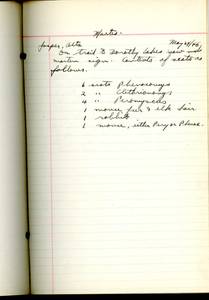 Martes.
Jasper, Alta May 28/46
On trail to Dorothy Lakes saw some
marten sign. Contents of scats as
follows.
6 scats Phenacomys
2 " Clethrionomys
4 " Peromyscus
1 mouse fur & elk hair
1 rabbit
1 mouse, either Pery or Phena.